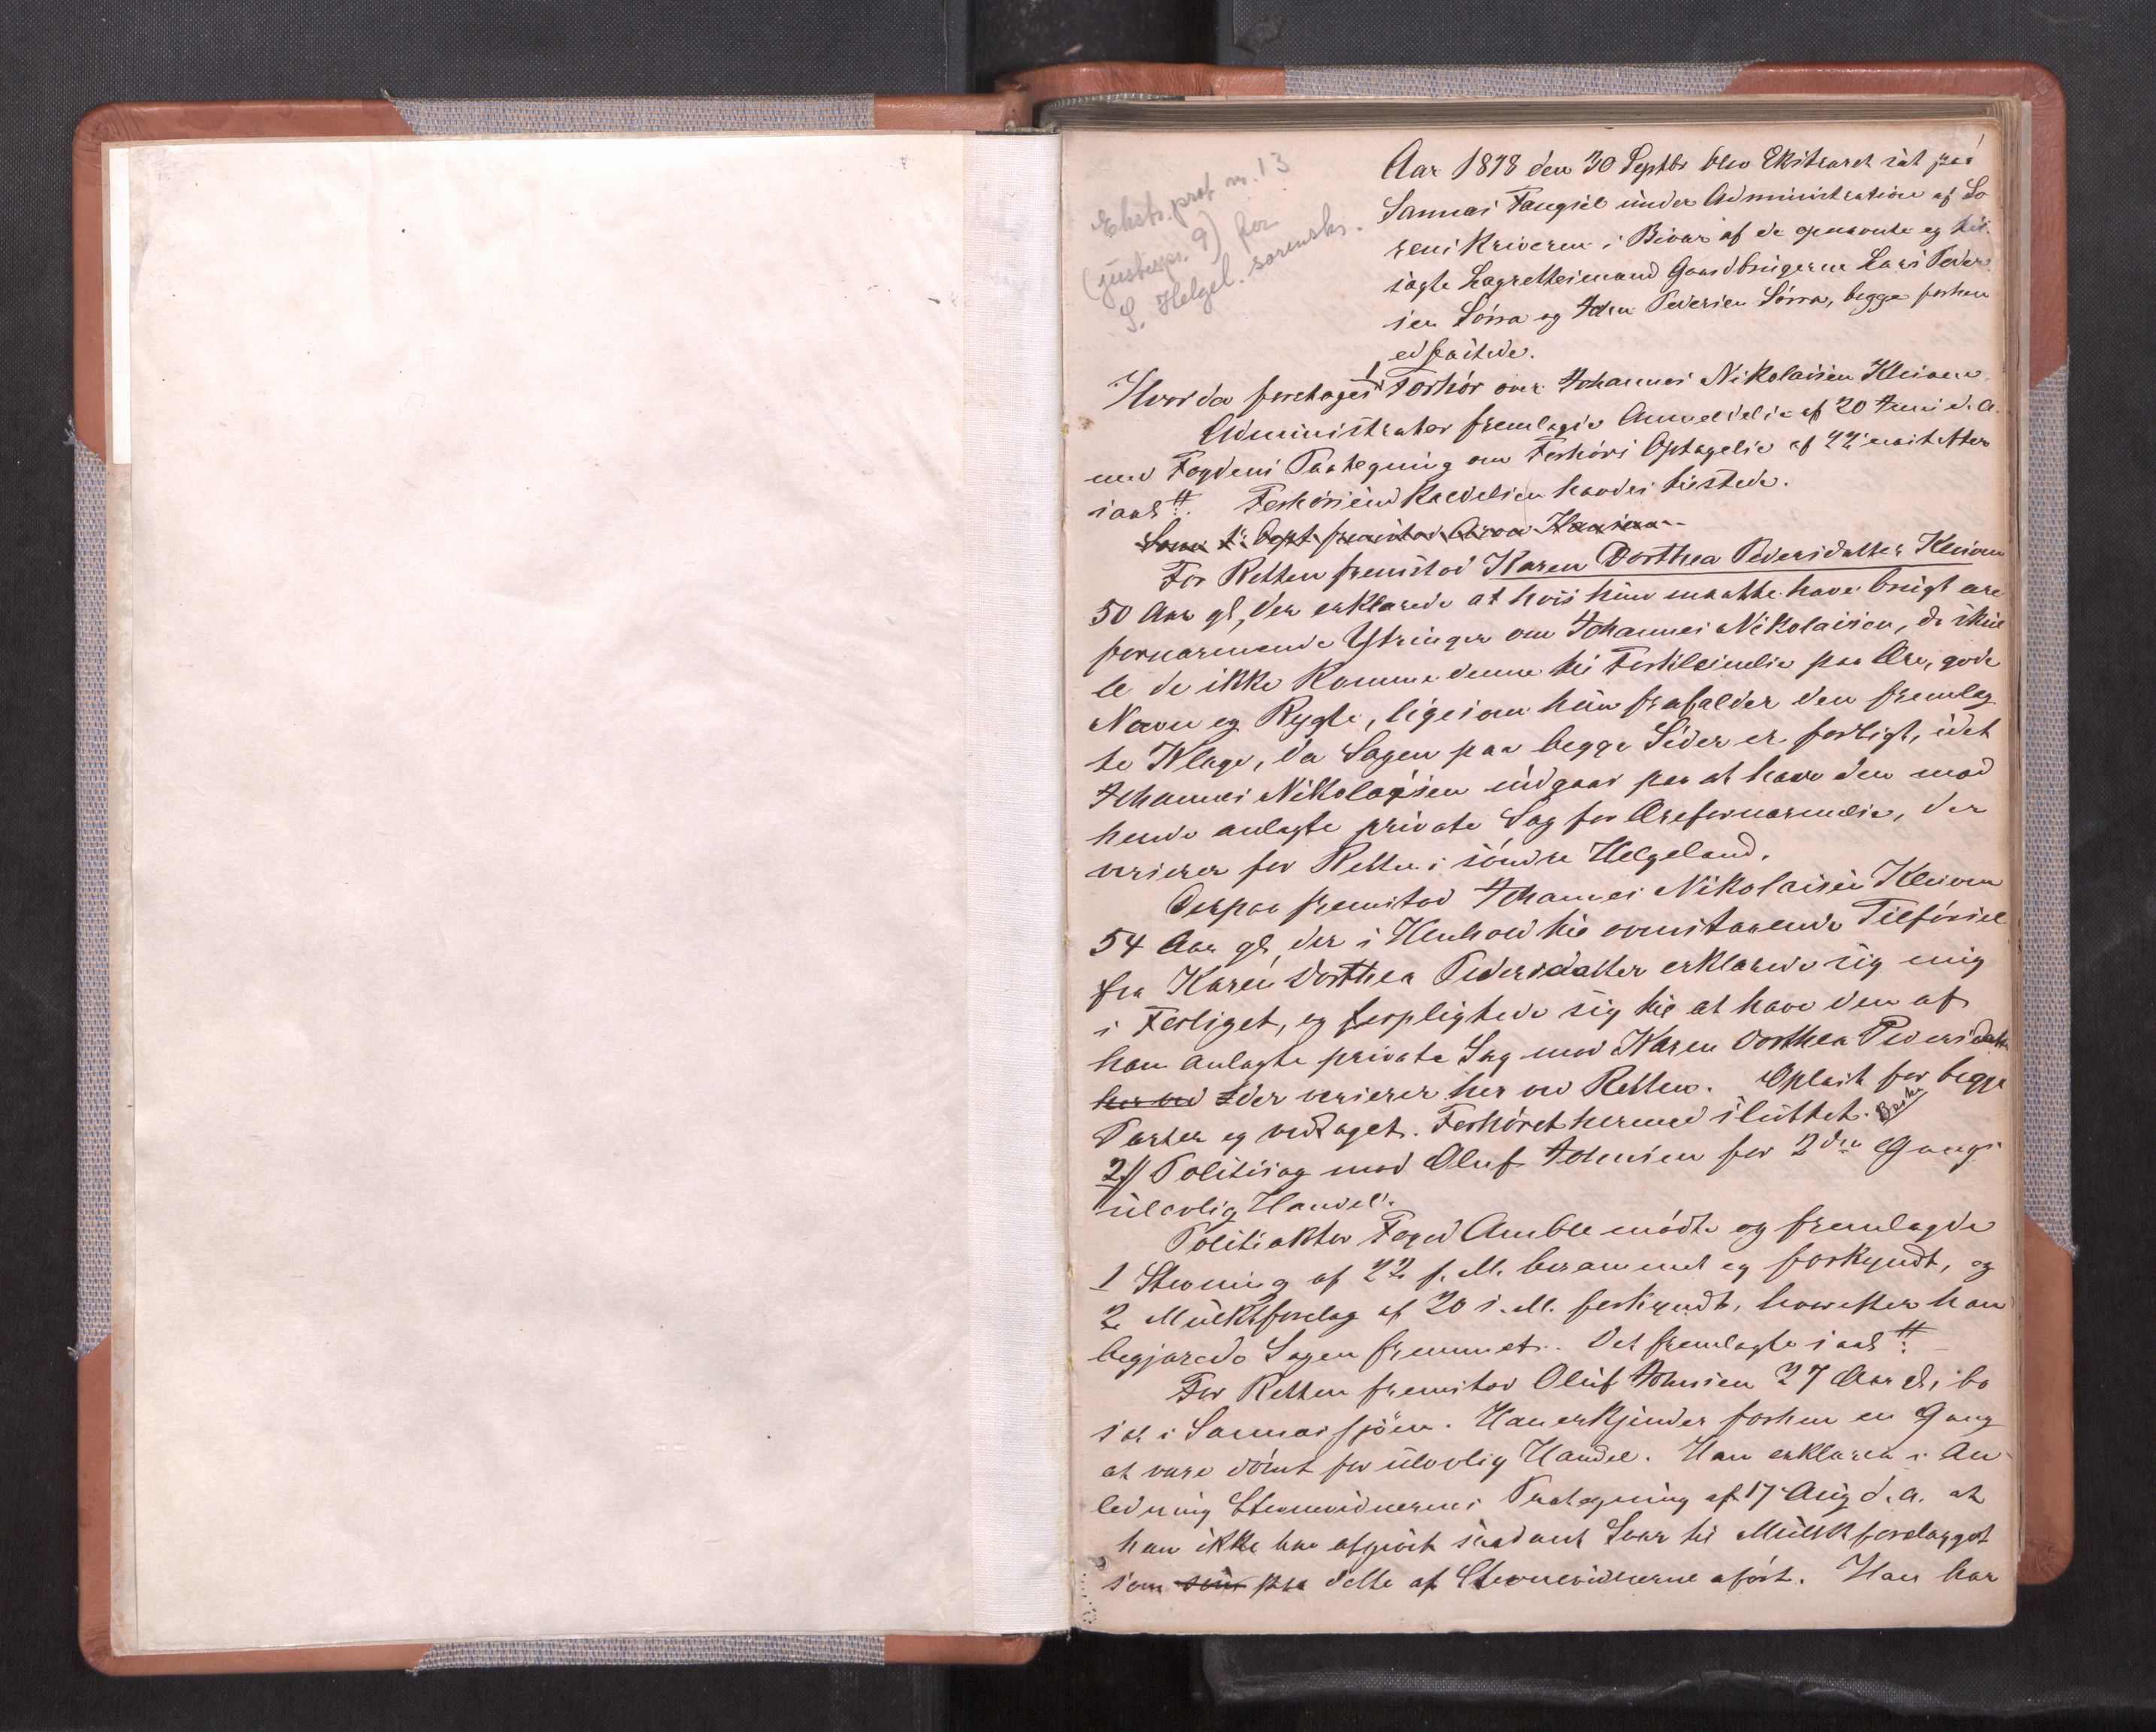 Ekstr.prot nr. 13
(justispr. 9) for
S. Helgel. sorenskr.
Aar 1878 den 30 Septbr blev Extraret sat paa
Sannæs Tingsted under Administration af So
renskriveren i Bivær af de opnævnte og til
sagte Lagrettesmænd Gaardbrugerne Lars Peder
sen Sörra og Peder Pedersen Sörra, begge forhen
edfæstede.
Hvorda foretoges 1, Forhör over Johannes Nikolaisen Kleiven
Administrator fremlagde Anmeldelse af 20 Juni d. A.
med Fogdens Paategning om Forhörs Optagelse af 22 næstefter
saal ". Forhörsindkaldelsen havdes tilstede.
Som 1ste Vept fremstod Hansen
For Retten fremstod Karen Dorthea Pedersdatter Kleiven
50 Aar gl, der erklærede at hvis hun maatte have brugt ære
fornærmende Ytringer om Johannes Nikolaisen, da skul
le de ikke komme denne til Forkleinelse paa Ære, gode
Navn og Rygte, ligesom hun frafalder den fremlag
te Klage, da Sagen paa begge Sider er forligt, idet
Johannes Nikolaisen indgaar paa at hæve den mod
hende anlagte private Sag for Ærefornærmelse, der
verserer for Retten i söndre Helgeland.
Derpaa fremstod Johannes Nikolaisen Kleiven
54 Aar gl, der i Henhold til ovenstaaende Tilförsel
fra Karen Dorthea Pedersdatter erklærede sig enig
i Forliget, og forpligtede sig til at hæve den af
ham anlagte private Sag mod Karen Dorthea Pedersdatter
her ved der verserer her ved Retten. Oplæst for begge
Parter og vedtaget. Forhöret hermed sluttet. Besk
2// Politisag mod Oluf Johnsen for 2den Gangs
ulovlig Handel.
Politiaktor Foged Amble mödte og fremlagde
1 Stevning af 22 f. M. berammet og forkyndt, og
2 Mulktforelag af 20 s. M. forkyndt, hvorefter han
begjærede Sagen fremmet. Det fremlagte saal "
For Retten fremstod Oluf Johnsen 27 Aar gl, bo
sat i Sannæssjöen. Han erkjender forhen en Gang
at være dömt for ulovlig Handel. Han erklærer i An
ledning Stevnevidnernes Paategning af 17 Aug d. A. at
han ikke har afgivet saadant Svar til Mulktforelægget
som som paa dette af Stevnevidnerne anfört. Han har